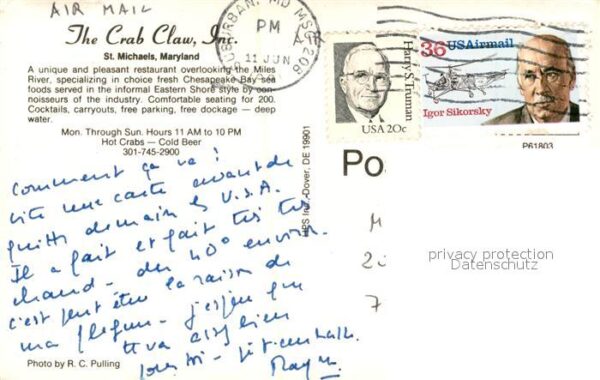 AIR MAIL
The Crab Claw, Inc.
St. Michaels, Maryland
A unique and pleasant restaurant overlooking the Miles
River, specializing in choice fresh Chesapeake Bay sea
foods served in the informal Eastern Shore style by con-
noisseurs of the industry. Comfortable seating for 200.
Cocktails, carryouts, free parking, free dockage — deep
water.
Mon. Through Sun. Hours 11 AM to 10 PM
Hot Crabs — Cold Beer
301-745-2900
SUBURBAN, MD MSC 208
PM
11 JUN
Harry S. Truman
USA 20c
36 USAirmail
Igor Sikorsky
P61803
HPS Inc., Dover, DE 19901
Po
M
7
privacy protection
Datenschutz
Comment ça va ?
vite une carte avant de
quitter demain les U.S.A.
Il a fait et fait très très
chaud - du 40° environ.
c'est peut être la raison de
ma flegme - j'espère que
tout va bien
Photo by R. C. Pulling